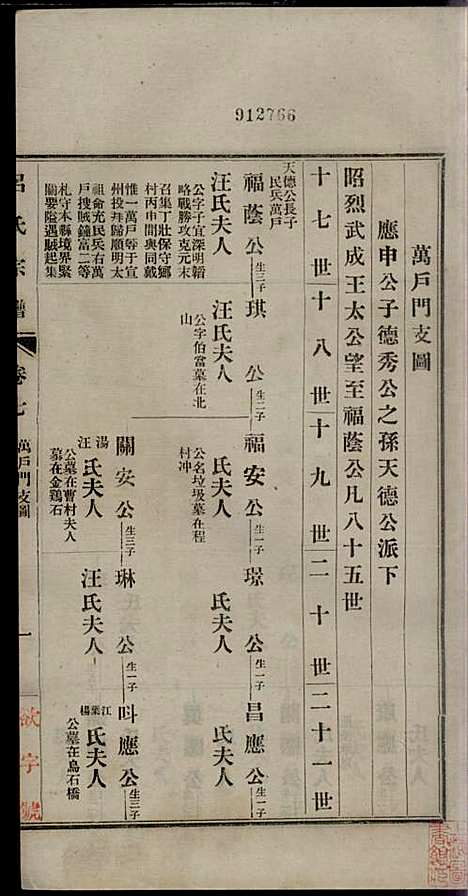 912766
萬戶門支圖
應申公子德秀公之孫天德公派下
昭烈武成王太公望至福蔭公凡八十五世
十七世十八世十九世二十世二十一世
天德公長子
民兵萬戶
福蔭公生三子
琪公生二子
福安公生一子
璟公生一子
昌應公生一子
汪氏夫人
汪氏夫人
氏夫人
氏夫人
氏夫人
公字子宜深明韜
略戰勝攻克元末
召集丁壯保守鄉
村丙申間與同戴
惟一萬戶等于宣
州投拜歸順明太
祖命充民兵右萬
戶搜賊鐘富二等
札守本縣境界緊
關要隘遇賊起集
公字伯當墓在北
山
公名垃圾墓在程
村冲
關安公生三子
琳公生一子
呌應公生三子
湯汪氏夫人
汪氏夫人
江葉楊氏夫人
公墓在曹村夫人
墓在金鷄石
公墓在烏石橋
呂氏宗譜
卷七
萬戶門支圖
一
欲字號